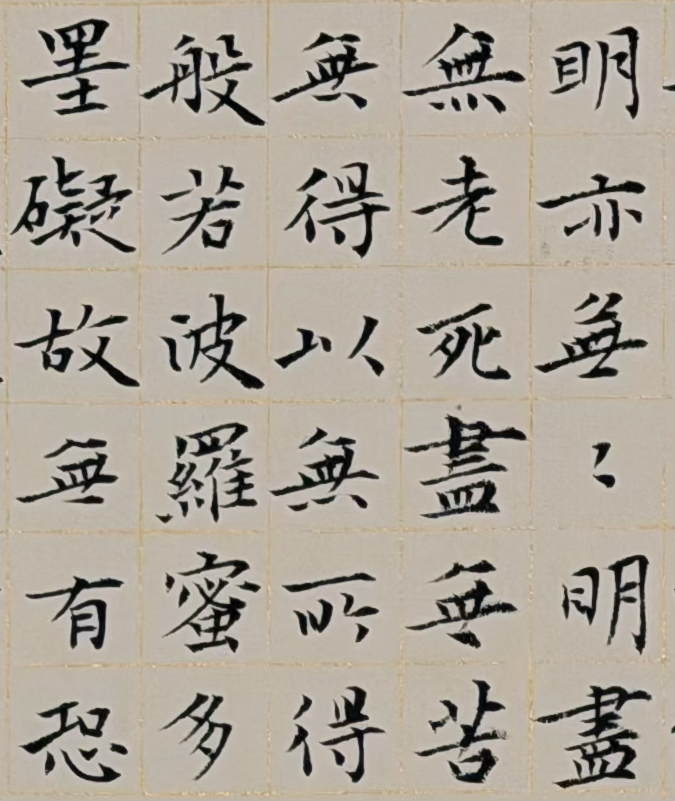 明亦無〻明盡
無老死盡無苦
無得以無所得
般若波羅蜜多
罣礙故無有恐